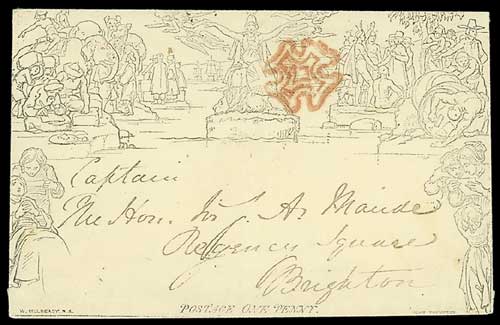 Captain
The Hon. Sir J. A. Maude
Regency Square
Brighton
POSTAGE ONE PENNY.
W. MULREADY, R.A.
JOHN THOMPSON